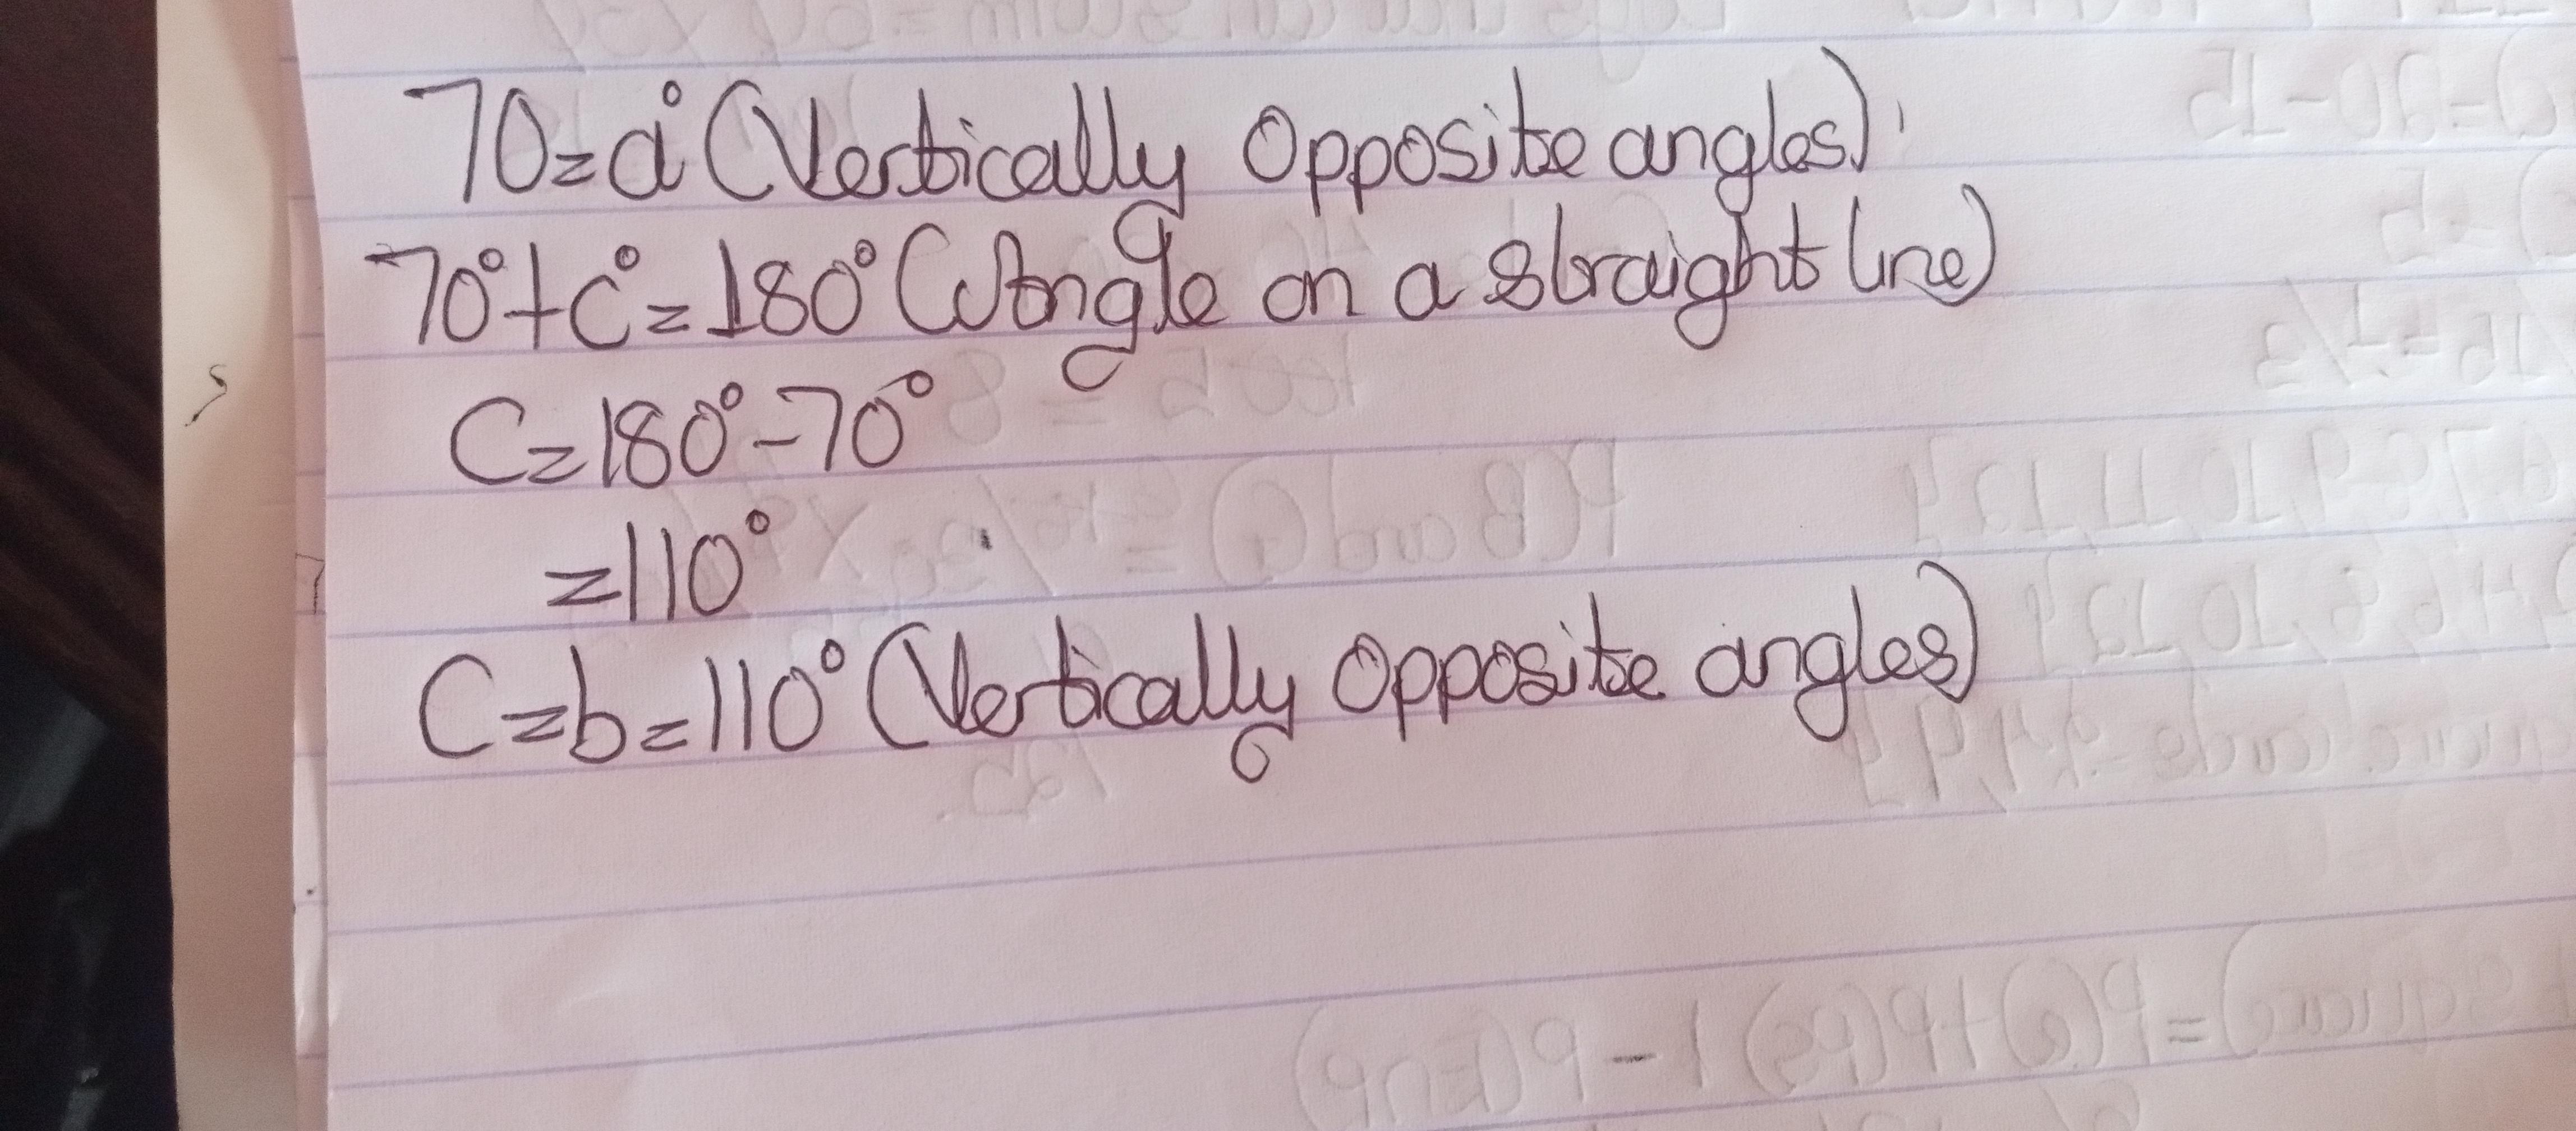 70=a° (Vertically Opposite angles)
70°+c°=180° (Angle on a straight line)
C=180°-70°
=110°
C=b=110° (Vertically Opposite angles)